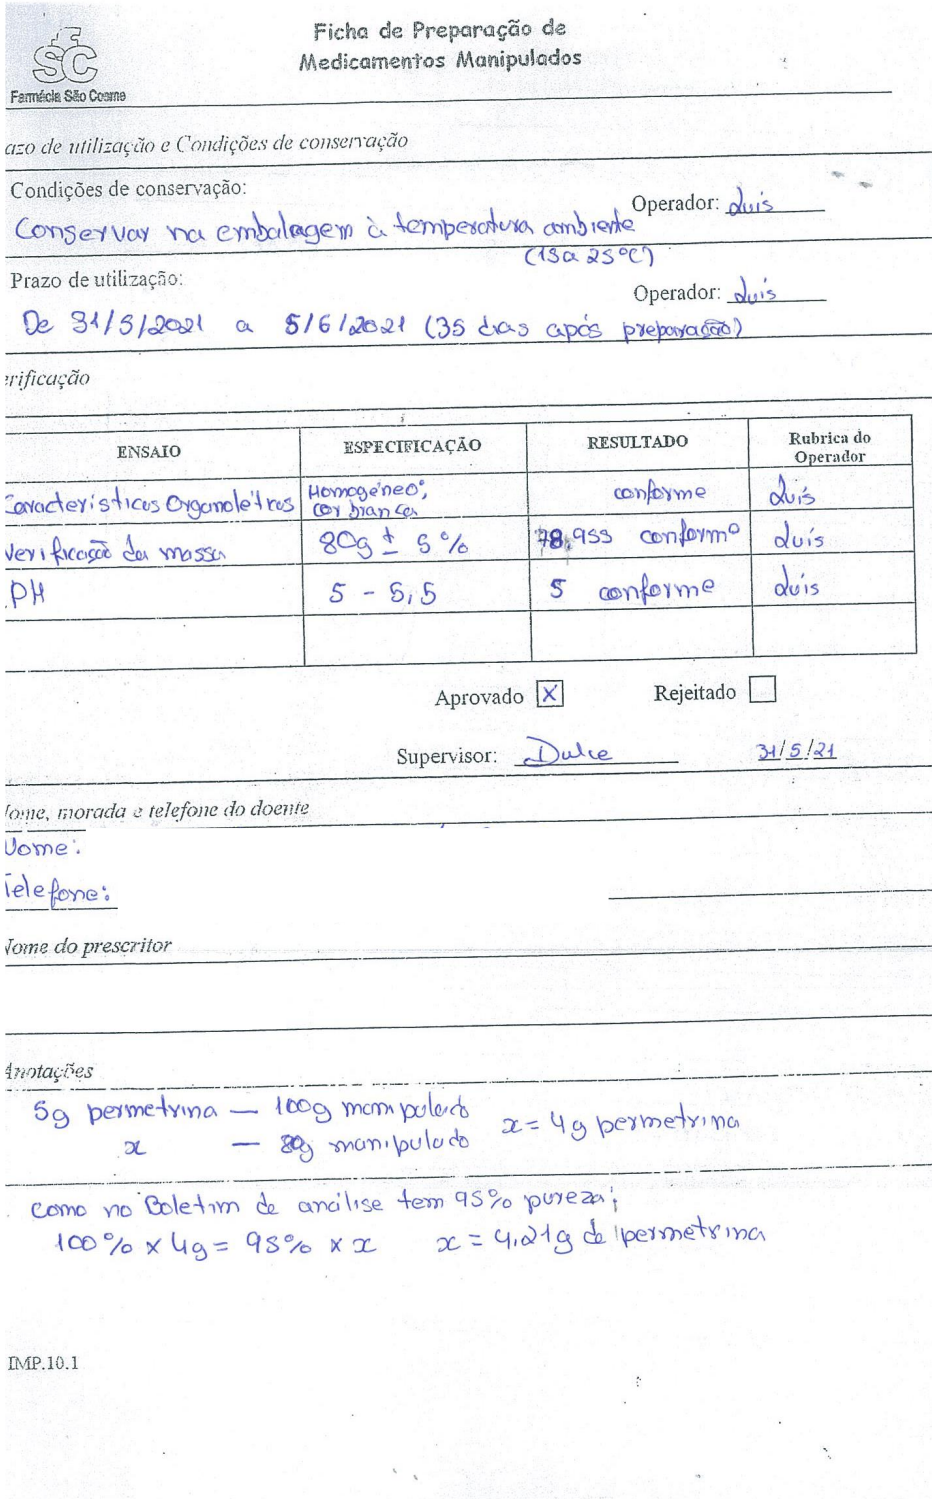 Ficha de Preparação de
Medicamentos Manipulados
FSC
Farmácia São Cosme
azo de utilização e Condições de conservação
Condições de conservação:
Operador: Luís
Conservar na embalagem à temperatura ambiente
(15 a 25ºC)
Prazo de utilização:
Operador: Luís
De 31/5/2021 a 5/6/2021 (35 dias após preparação)
erificação
ENSAIO ESPECIFICAÇÃO RESULTADO Rubrica do Operador
Características Organoléticas Homogéneo; cor branca conforme Luís
Verificação da massa 80g ± 5% 78,953 conforme Luís
PH 5 - 5,5 5 conforme Luís
Aprovado X Rejeitado
Supervisor: Dulce 31/5/21
Nome, morada e telefone do doente
Nome:
Telefone:
Nome do prescritor
Anotações
5g permetrina — 100g manipulado
x — 80g manipulado x = 4g permetrina
como no Boletim de análise tem 95% pureza;
100% x 4g = 95% x x x = 4,21g de permetrina
IMP.10.1